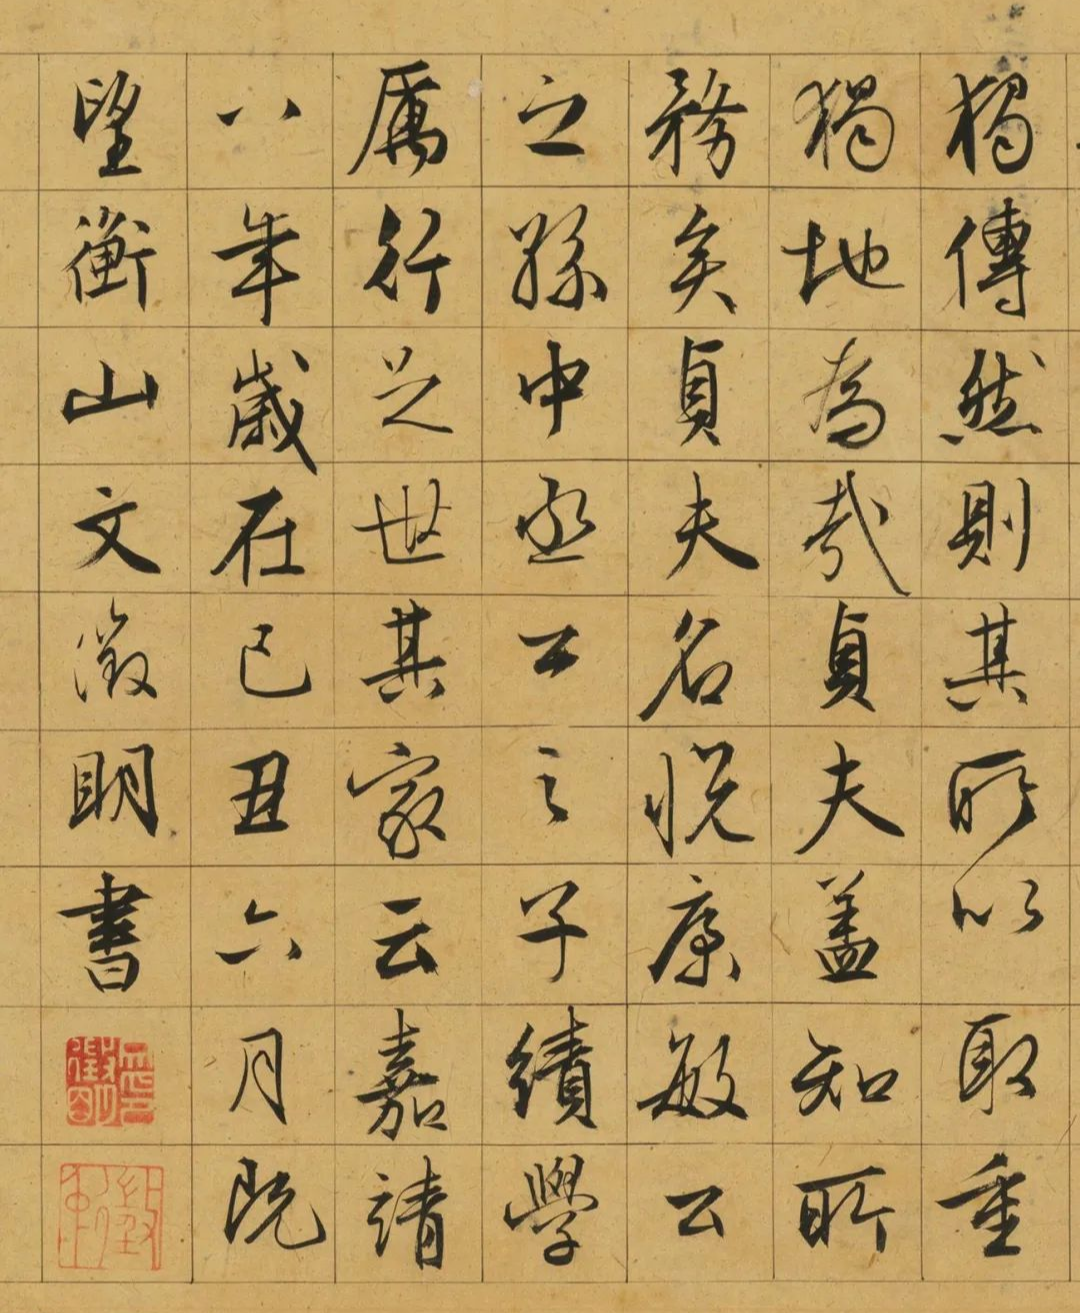 獨傳然則其所以取重
獨地為哉貞夫盖知所
務矣貞夫名悅康敏公
之孫中丞公之子績學
厲行足世其家云嘉靖
八年歲在己丑六月既
望衡山文徵明書